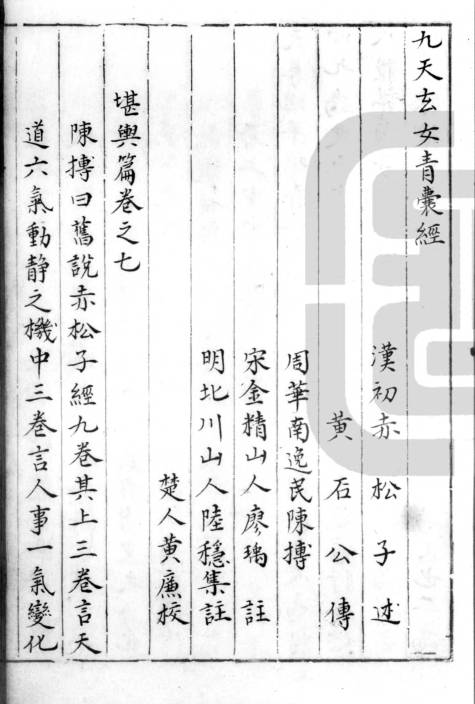 九天玄女青囊經
漢初赤松子述
黃石公傳
周華南逸民陳摶
宋金精山人廖瑀註
明北川山人陸穩集註
楚人黃廉校
堪輿篇卷之七
陳摶曰舊說赤松子經九卷其上三卷言天
道六氣動靜之機中三卷言人事一氣變化